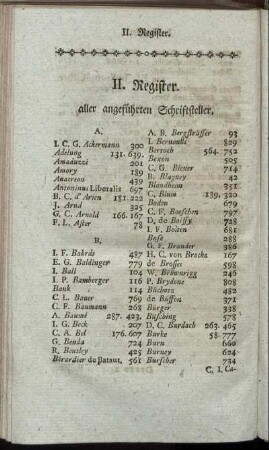 II. Register.
II. Register.
aller angeführten Schriftsteller.
A.
I. C. G. Ackermann 300
Adelung 131. 639.
Amaduzzi 201
Amory 189
Anacreon 439
Antoninus Liberalis 697
B. C. d'Arien 181. 222
J. Arnd 325
G. C. Arnold 166. 167
F. L. Aster 78
B.
I. F. Bahrdt 487
E. G. Baldinger 779
I. Ball 104
I. P. Bamberger 116
Bank 114
C. L. Bauer 769
C. F. Baumann 208
A. Baumé 287. 423.
I. G. Beck 207
C. A. Bel 176. 607
G. Benda 724
R. Bentley 425
Bérardier de Bataut, 561
A. B. Bergsträsser 93
I. Bernoulli 829
Bertuch 564. 752
Bexon 505
C. G. Biener 714
B. Blayney 42
Blondheim 351
C. Blum 189, 320
Boden 679
C. F. Boeschen 797
D. de Boissy 728
I. F. Bolten 681
Bose 288
G. F. Brander 386
H. C. von Brocke 167
de Brosses 598
W. Brownrigg 246
P. Brydone 808
Büchner 482
de Büffon 801
Bürger 337
Büsching 578
D. C. Burdach 263. 465
Burke 58. 777
Burn 660
Burney 624
Burscher 734
C. I. Ca-